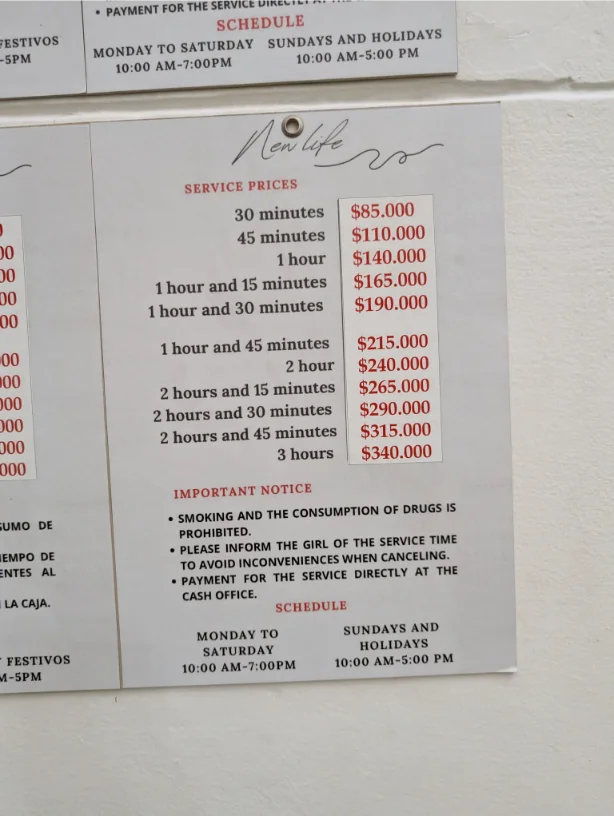 • PAYMENT FOR THE SERVICE DIRECTLY AT THE
SCHEDULE
MONDAY TO SATURDAY
10:00 AM-7:00PM
SUNDAYS AND HOLIDAYS
10:00 AM-5:00 PM
FESTIVOS
-5PM
New life
SERVICE PRICES
30 minutes $85.000
45 minutes $110.000
1 hour $140.000
1 hour and 15 minutes $165.000
1 hour and 30 minutes $190.000
1 hour and 45 minutes $215.000
2 hour $240.000
2 hours and 15 minutes $265.000
2 hours and 30 minutes $290.000
2 hours and 45 minutes $315.000
3 hours $340.000
IMPORTANT NOTICE
• SMOKING AND THE CONSUMPTION OF DRUGS IS
PROHIBITED.
• PLEASE INFORM THE GIRL OF THE SERVICE TIME
TO AVOID INCONVENIENCES WHEN CANCELING.
• PAYMENT FOR THE SERVICE DIRECTLY AT THE
CASH OFFICE.
SCHEDULE
MONDAY TO
SATURDAY
10:00 AM-7:00PM
SUNDAYS AND
HOLIDAYS
10:00 AM-5:00 PM
0
00
00
00
00
00
000
000
000
000
000
SUMO DE
IEMPO DE
ENTES AL
LA CAJA.
Y FESTIVOS
M-5PM